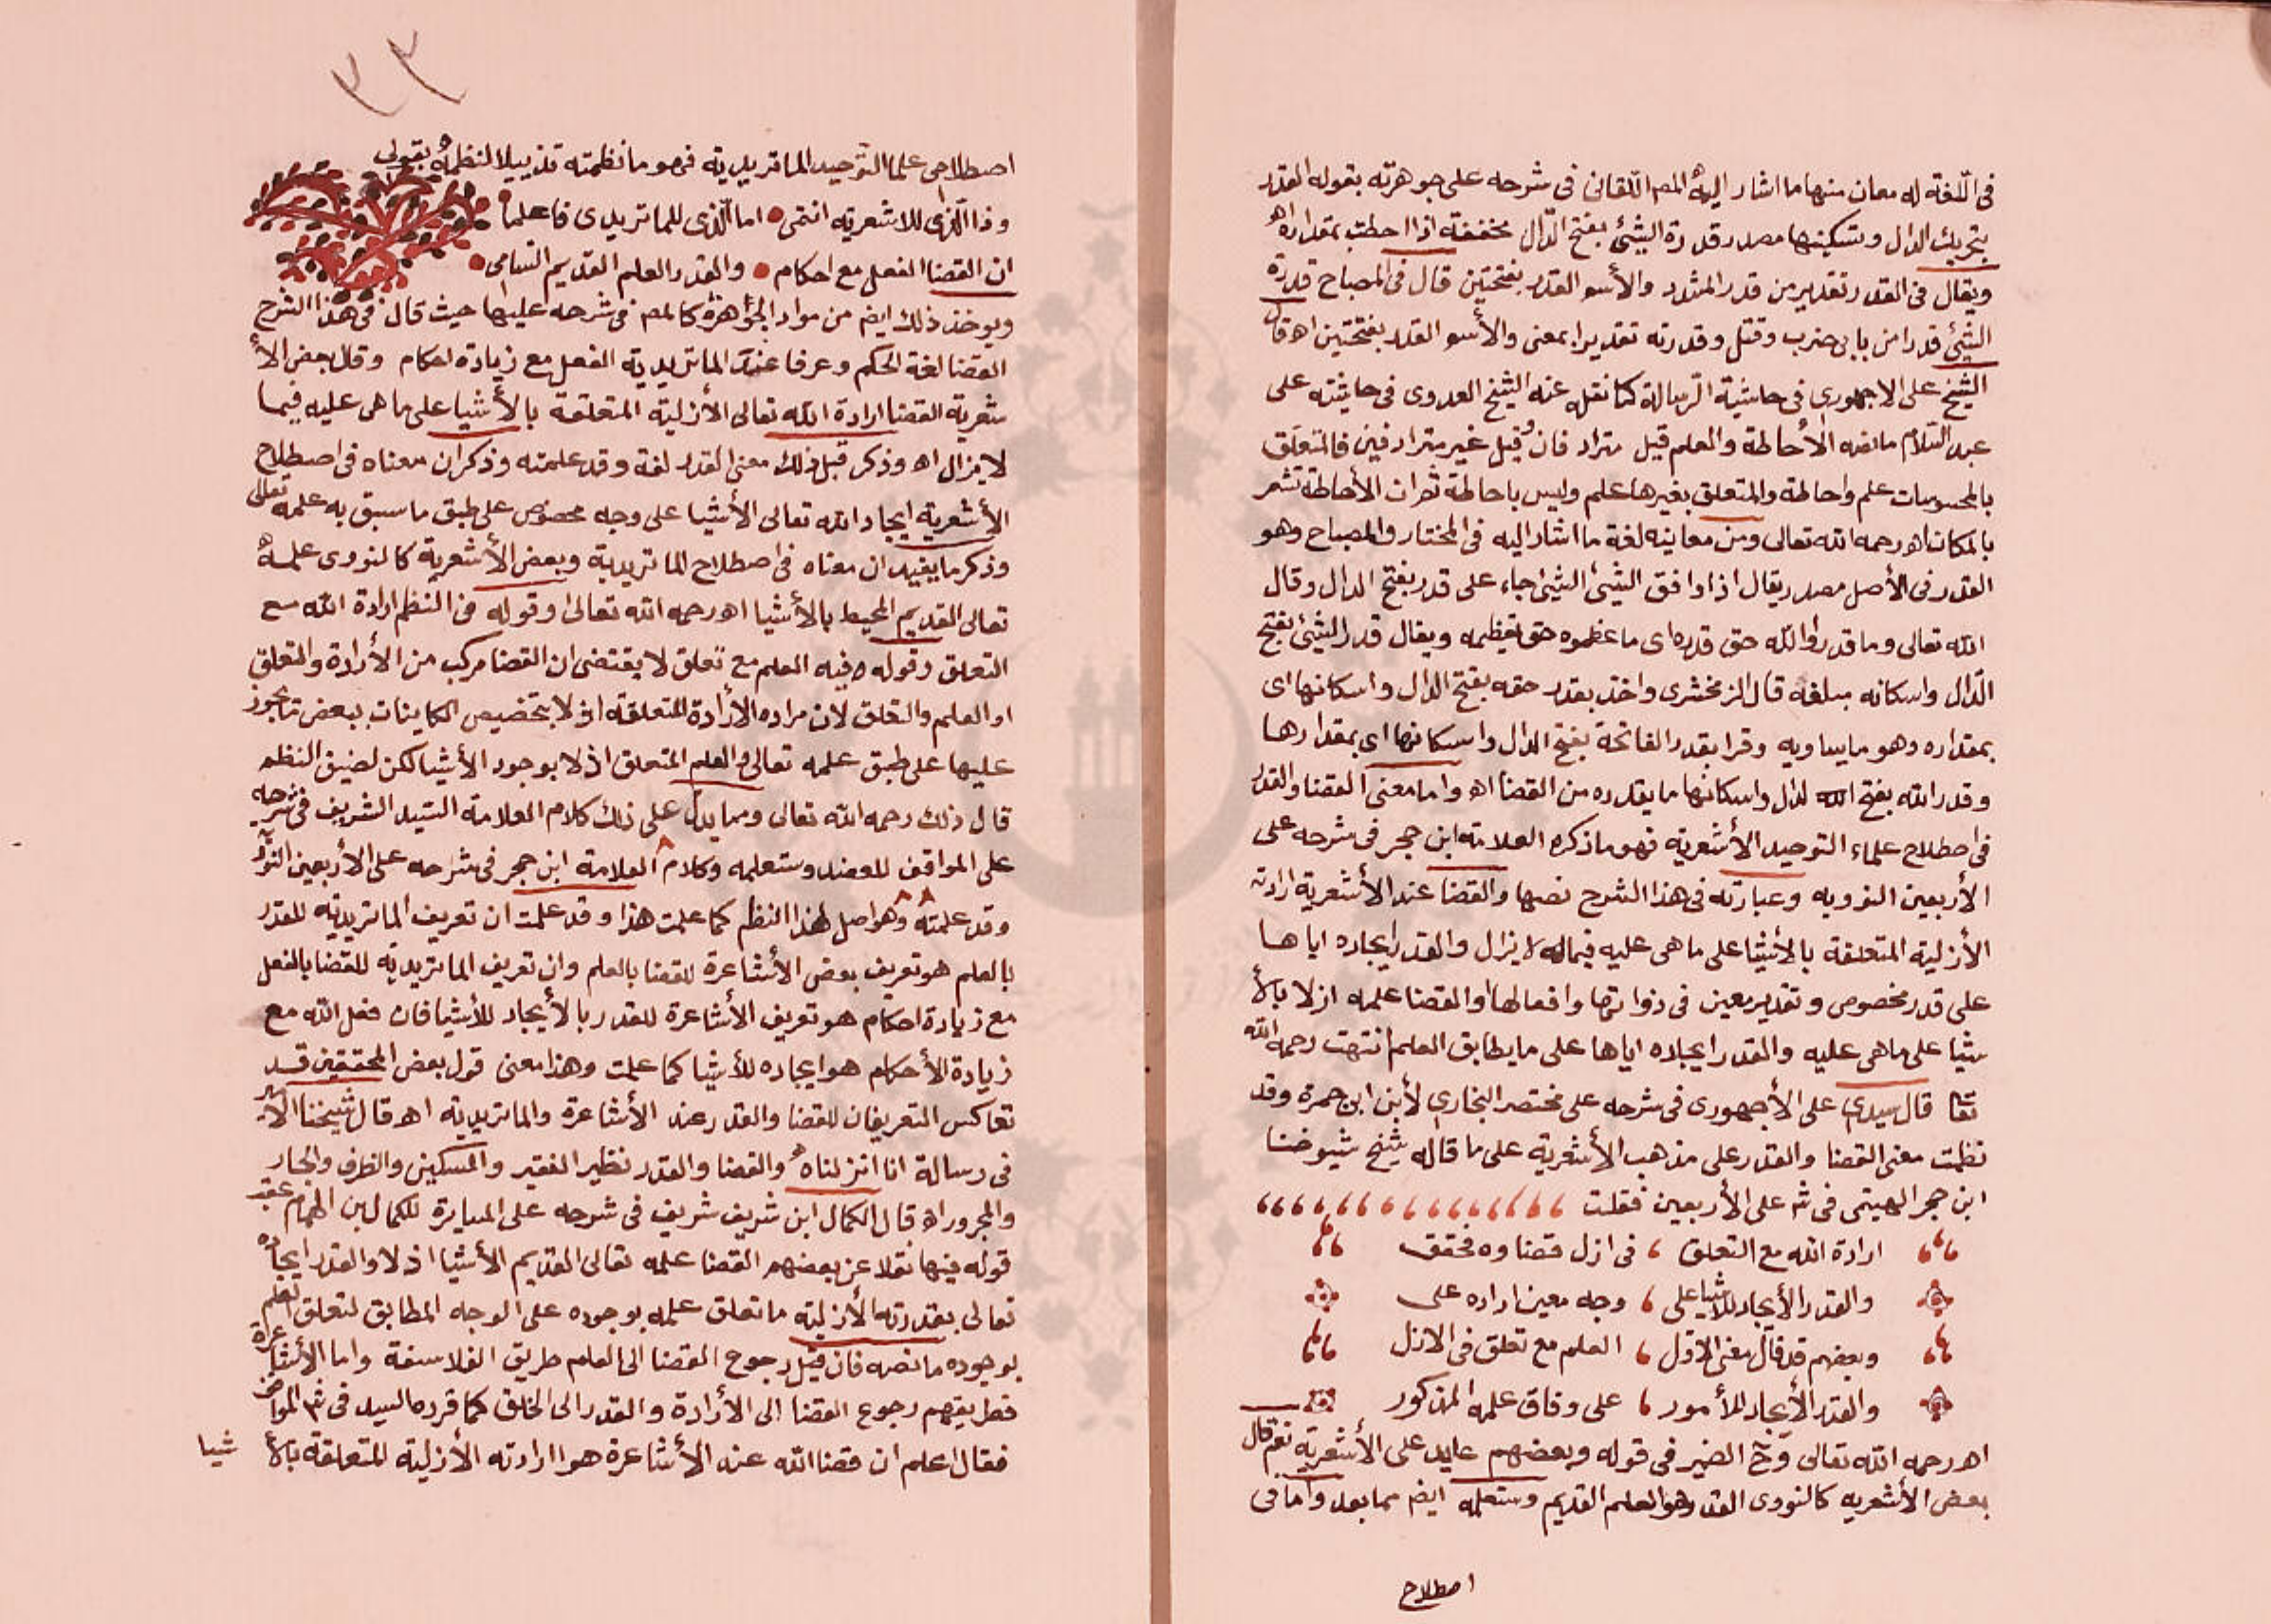 في اللغة له معان منها ما اشار اليه المص اللقاني في شرحه على جوهرته بقوله القدر
بتحريك الدال وتسكينها مصدر قدرة الشئ بفتح الدال مخففة اذا احطت بمقداره اه
ويقال في القدر تقدير من قدر المشدد والأسو القدر بفتحتين قال في المصباح قدرة
الشئ قدرا من بابي ضرب وقتل وقدرته تقديرا بمعنى والأسو القدر بفتحتين اه قال
الشيخ على الاجهوري في حاشية الرسالة كما نقله عنه الشيخ العدوى في حاشيته على
عبد السلام ما نصه الأحاطة والعلم قيل مترادفان وقيل غير مترادفين فالمتعلق
بالمحسوسات علم واحاطة والمتعلق بغيرها علم وليس باحاطة ثم ان الأحاطة تشعر
بالمكان اه رحمه الله تعالى ومن معانيه لغة ما اشار اليه في المختار والمصباح وهو
القدر في الأصل مصدر يقال اذا وافق الشئ الشئ جاء على قدر بفتح الدال وقال
الله تعالى وما قدروا الله حق قدره اى ما عظموه حق تعظيمه ويقال قدر الشئ بفتح
الدال واسكانه مبلغه قال الزمخشرى واخذ بقدر حقه بفتح الدال واسكانها اى
بمقداره وهو ما يساويه وقرا بقدر الفاتحة بفتح الدال واسكانها اى بمقدارها
وقدر الله بفتح الدال واسكانها ما يقدره من القضا اه واما معنى القضا والقدر
في اصطلاح علماء التوحيد الأشعرية فهو ما ذكره العلامة ابن حجر في شرحه على
الأربعين النوويه وعبارته في هذا الشرح نصها والقضا عند الأشعرية ارادته
الأزلية المتعلقة بالأشيا على ما هى عليه فيما لا يزال والقدر ايجاده اياها
على قدر مخصوص وتقدير معين في ذواتها وافعالها او القضا علمه ازلا بالأ
شيا على ما هى عليه والقدر ايجاده اياها على ما يطابق العلم انتهت رحمه الله
تعا قال سيدي على الأجهورى في شرحه على مختصر البخاري لأبن ابن جمرة وقد
نظمت معنى القضا والقدر على مذهب الأشعرية على ما قاله شيخ شيوخنا
ابن حجر الهيتمى في شرـ على الأربعين فقلت
ارادة الله مع التعلق ، في ازل قضاوه فحقق
والقدر الأيجاد للأشيا على ، وجه معين اراده على
وبعضهم قد قال معنى الاول ، العلم مع تعلق في الازل
والقدر الأيجاد للأمور ، على وفاق علمه المذكور
اه رحمه الله تعالى وح الضمير في قوله وبعضهم عايد على الأشعرية نعم قال
بعض الأشعريه كالنووى القدر هو العلم القديم وستعلمه ايضـ مما بعد واما في
اصطلاح
٣٣
اصطلاحى علما التوحيد الماتريدية فهو ما نظمته تذييلا لنظمه بقولى
وذا الذى للاشعرية انتمى • اما الذى للماتريدى فاعلما
ان القضا الفعل مع احكام • والقدر العلم القديم السامى
ويوخذ ذلك ايضـ من مواد الجوهرة كالمص في شرحه عليها حيث قال في هذا الشرح
القضا لغة الحكم وعرفا عند الماتريدية الفعل مع زيادة احكام وقال بعض الأ
شعرية القضا ارادة الله تعالى الأزلية المتعلقة بالأشيا على ما هى عليه فيما
لا يزال اه وذكر قبل ذلك معنى القدر لغة وقد علمته وذكر ان معناه في اصطلاح
الأشعرية ايجاد الله تعالى الأشيا على وجه مخصوص على طبق ما سبق به علمه تعالى
وذكر ما يفيد ان معناه في اصطلاح الماتريدية وبعض الأشعرية كالنووى علمه
تعالى القديم المحيط بالأشيا اه رحمه الله تعالى وقوله في النظم ارادة الله مع
التعلق وقوله فيه العلم مع تعلق لا يقتضى ان القضا مركب من الأرادة والتعلق
او العلم والتعلق لان مراده الأرادة المتعلقة ازلا بتخصيص الكاينات ببعض ما يجوز
عليها على طبق علمه تعالى والعلم المتعلق ازلا بوجود الأشيا لكن لضيق النظم
قال ذلك رحمه الله تعالى ومما يدل على ذلك كلام العلامة السيد الشريف في شرحه
على المواقف للعضد وستعلمه وكلام العلامة ابن حجر في شرحه على الأربعين
وقد علمته وهو اصل لهذا النظم كما علمت هذا وقد علمت ان تعريف الماتريدية للقدر
بالعلم هو تعريف بعض الأشاعرة للقضا بالعلم وان تعريف الماتريدية للقضا بالفعل
مع زيادة احكام هو تعريف الأشاعرة للقدر بالأيجاد للأشيا فان فعل الله مع
زيادة الأحكام هو ايجاده للأشيا كما علمت وهذا معنى قول بعض المحققين قد
تعاكس التعريفان للقضا والقدر عند الأشاعرة والماتريدية اه قال شيخنا
في رسالة انا انزلناه والقضا والقدر نظير الفقير والمسكين والظرف والجار
والمجرور اه قال الكمال ابن شريف في شرحه على المسايرة للكمال بن الهمام عقب
قوله فيها نقلا عن بعضهم القضا علمه تعالى القديم الأشيا ازلا والقدر ايجاده
تعالى بقدرته الأزلية ما تعلق علمه بوجوده على الوجه المطابق لتعلق العلم
بوجوده ما نصه فان قيل رجوع القضا الى العلم طريق الفلاسفة واما الأشاعرة
فطريقهم رجوع القضا الى الأرادة والقدر الى الخلق كما قرره السيد في شرـ المواقف
فقال اعلم ان قضا الله عند الأشاعرة هو ارادته الأزلية المتعلقة بالأ
شيا